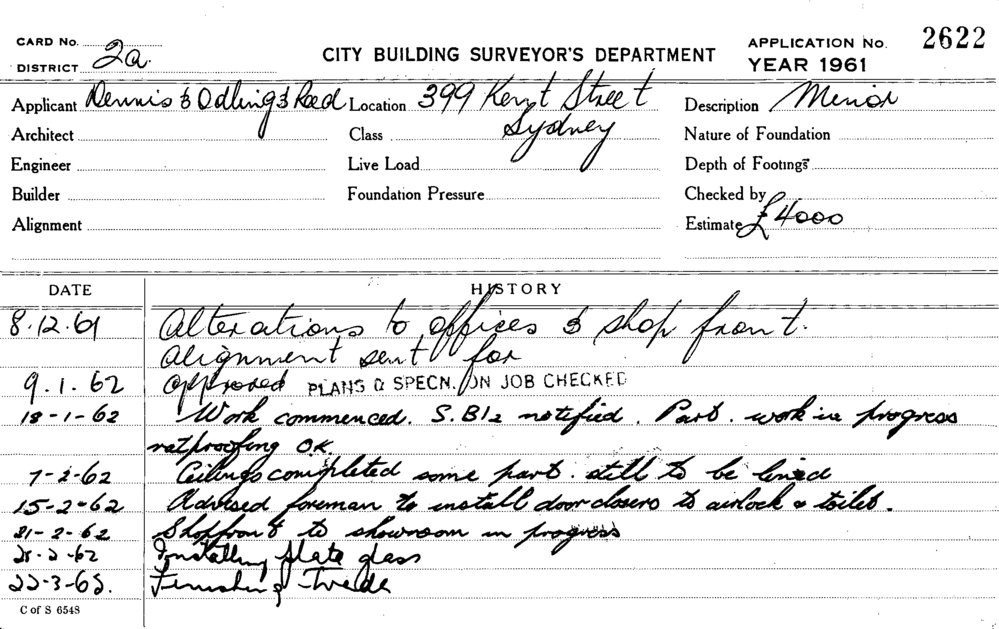 CARD No. 2a.
DISTRICT
CITY BUILDING SURVEYOR'S DEPARTMENT
APPLICATION No. 2622
YEAR 1961
Applicant Dennis & Odling & Reed Location 399 Kent Street Description Minor
Architect Class Sydney Nature of Foundation
Engineer Live Load Depth of Footings
Builder Foundation Pressure Checked by
Alignment Estimate £4000
DATE HISTORY
8.12.61 Alterations to offices & shop front.
Alignment sent for
9.1.62 Approved PLANS & SPECN. ON JOB CHECKED
18-1-62 Work commenced. S.B12 notified. Part. work in progress
ratproofing OK.
7-2-62 Ceilings completed some part. still to be lined
15-2-62 Advised foreman to install door closers to airlock & toilet.
21-2-62 Shopfront to showroom in progress
28-2-62 Installing plate glass
22-3-62. Finishing Trade
C of S 6548